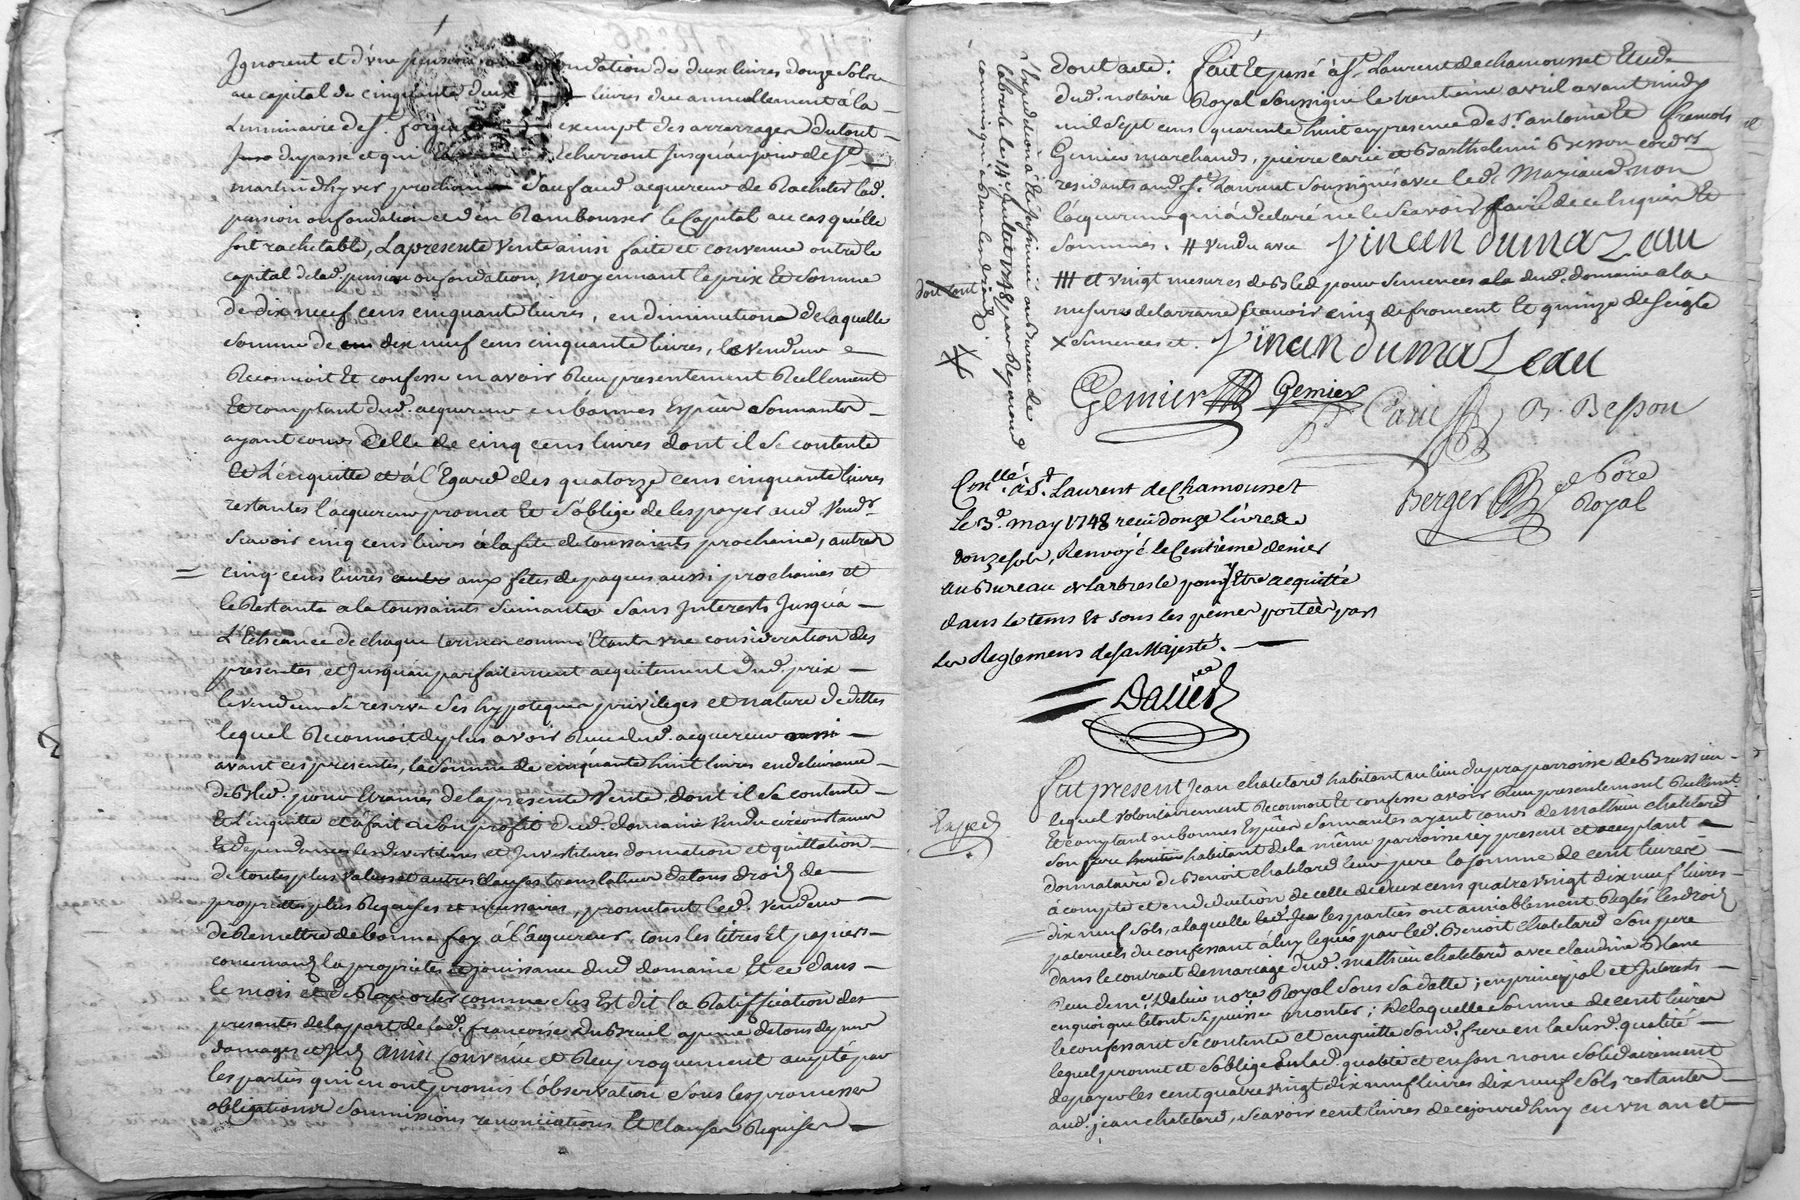 Ignorent et d'une pension ou fondation de deux livres douze sols
au capital de cinquante deux livres due annuellement à la
Luminaire de St. exempt des arrerages du tout
du passé et qui Echerront Jusqu'au jour de St
martin d'hyver prochaine sauf aud. acquereur de Racheter lad.
pension ou fondation et d'en Rembourser le Capital au cas qu'elle
soit rachetable, La presente Vente ainsi faite et convenue outre le
capital de lad. pension ou fondation, moyennant le prix Et somme
de dix neuf cens cinquante livres, en diminution de laquelle
somme de dix neuf cens cinquante livres, le vendeur
Reconnoit Et confesse en avoir Reçu presentement Reellement
Et comptant dud. acquereur en bonnes Espèces sonnantes
ayant cours celle de cinq cens livres dont il se contente
Et L'enquitte et à l'Egard des quatorze cens cinquante livres
restantes l'acquereur promet Et s'oblige de les payer aud. Vendr
scavoir cinq cens livres à la fete de toussaints prochaine, autres
cinq cens livres aux fetes de paques aussi prochaines et
le Restante a la toussaints suivante sans Interests Jusqu'à
L'Echeance de chaque termes comme Etant une consideration des
presentes, et Jusqu'au parfaitement acquitement dud. prix
le vendeur se reserve ses hypoteques privileges et nature de dettes
lequel Reconnoit de plus avoir Reçu dud. acquereur
avant ces presentes, la somme de cinquante huit livres en delivrance
de Bled. pour Etraines de la presente Vente dont il se contente
Et L'enquitte et a fait au profit dud. domaine Vendu circonstances
Et dependances les devestitures et Investitures donnation et quittation
de toutes plus Values et autres clauses translatives de tous droits de
proprietté plus Requises et necessaires, promettant led. Vendeur
de Remettre de bonne foy à l'acquereur, tous les titres Et papiers
concernant la proprietés et jouissance dud domaine Et ce dans
le mois et de Raporter comme sus Est dit la Ratiffication des
presentes de la part de lad. francoise Dubreuil a peine de tous depens
damages et Ints Ainsi Convenu et Reciproquement accepté par
les parties qui en ont promis l'observation sous les promesses
obligations soumissions renonciations Et clauses Requises
dont acte: fait Et passé à St. Laurent de chamousset Etude
dud. notaire Royal soussigné le trentieme avril avant midy
mil sept cens quarente huit en presence de Srs antoine Et francois
Gemier marchands, pierre carie et Barthelemi Besson cordrs
residants aud. St. Laurent soussignés avec led. Mazeaud non
lacquereur qui a declaré ne le scavoir faire de ce Enquis Et
sommés. # vendu avec Vincen dumazeau
# et vingt mesures de Bled pour semences a la dud. domaine a la
mesure de larbresle scavoir cinq de froment Et quinze de seigle
X semences et. Vincen dumazeau
Gemier Gemier P. Carie B. Besson
Berger Nore Royal
Conllé. à St. Laurent de Chamousset
Le 3e. may 1748 recu douze Livres
douze sols, Renvoyé le Centieme denier
au Bureau de Larbresle pour y Etre acquitté
dans le tems Et sous les peines portées par
Les Reglemens de sa Majesté.
Dalier
Exped
Fut present Jean chatelard habitant au lieu du pra parroisse de Brussieu
lequel volontairement Reconnoit Et confesse avoir Reçu presentement Reellemt
Et comptant en bonnes Espèces sonnantes ayant cours de Mathieu chatelard
son frere habitant de la même parroisse icy present et acceptant
donnataire de Benoit chatelard leur pere la somme de cent livres
à compte et en deduction de celle de deux cens quatre vingt dix neuf livres
dix neuf sols, a laquelle les parties ont amiablement Reglés les droits
paternels du confessant à luy legués par led. Benoit chatelard son pere
dans le contrat de mariage dud. mathieu chatelard avec claudine Blanc
Recu de me. Dalier nore Royal sous sa datte; en principal et Interests
en quoi que le tout se puisse monter; De laquelle somme de cent livres
le confessant se contente et en quitte sond. frere en la susd. qualité
lequel promet et s'oblige En lad. qualité et en son nom solidairement
de payer les cent quatre vingt dix neuf livres dix neuf sols restantes
aud. jean chatelard, scavoir cent livres de ce jourd'huy en un an et